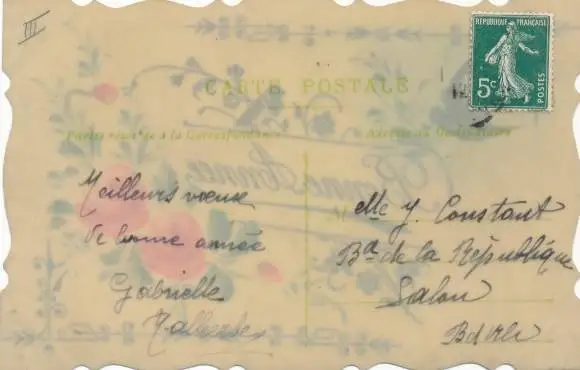 III
RÉPUBLIQUE FRANÇAISE
5c
POSTES
CARTE POSTALE
Partie réservée à la Correspondance
Adresse du Destinataire
Bonne Année
Meilleurs vœux
de bonne année
Gabrielle
Malherbe
Melle Y. Constant
Bd de la République
Salon
B d Rh